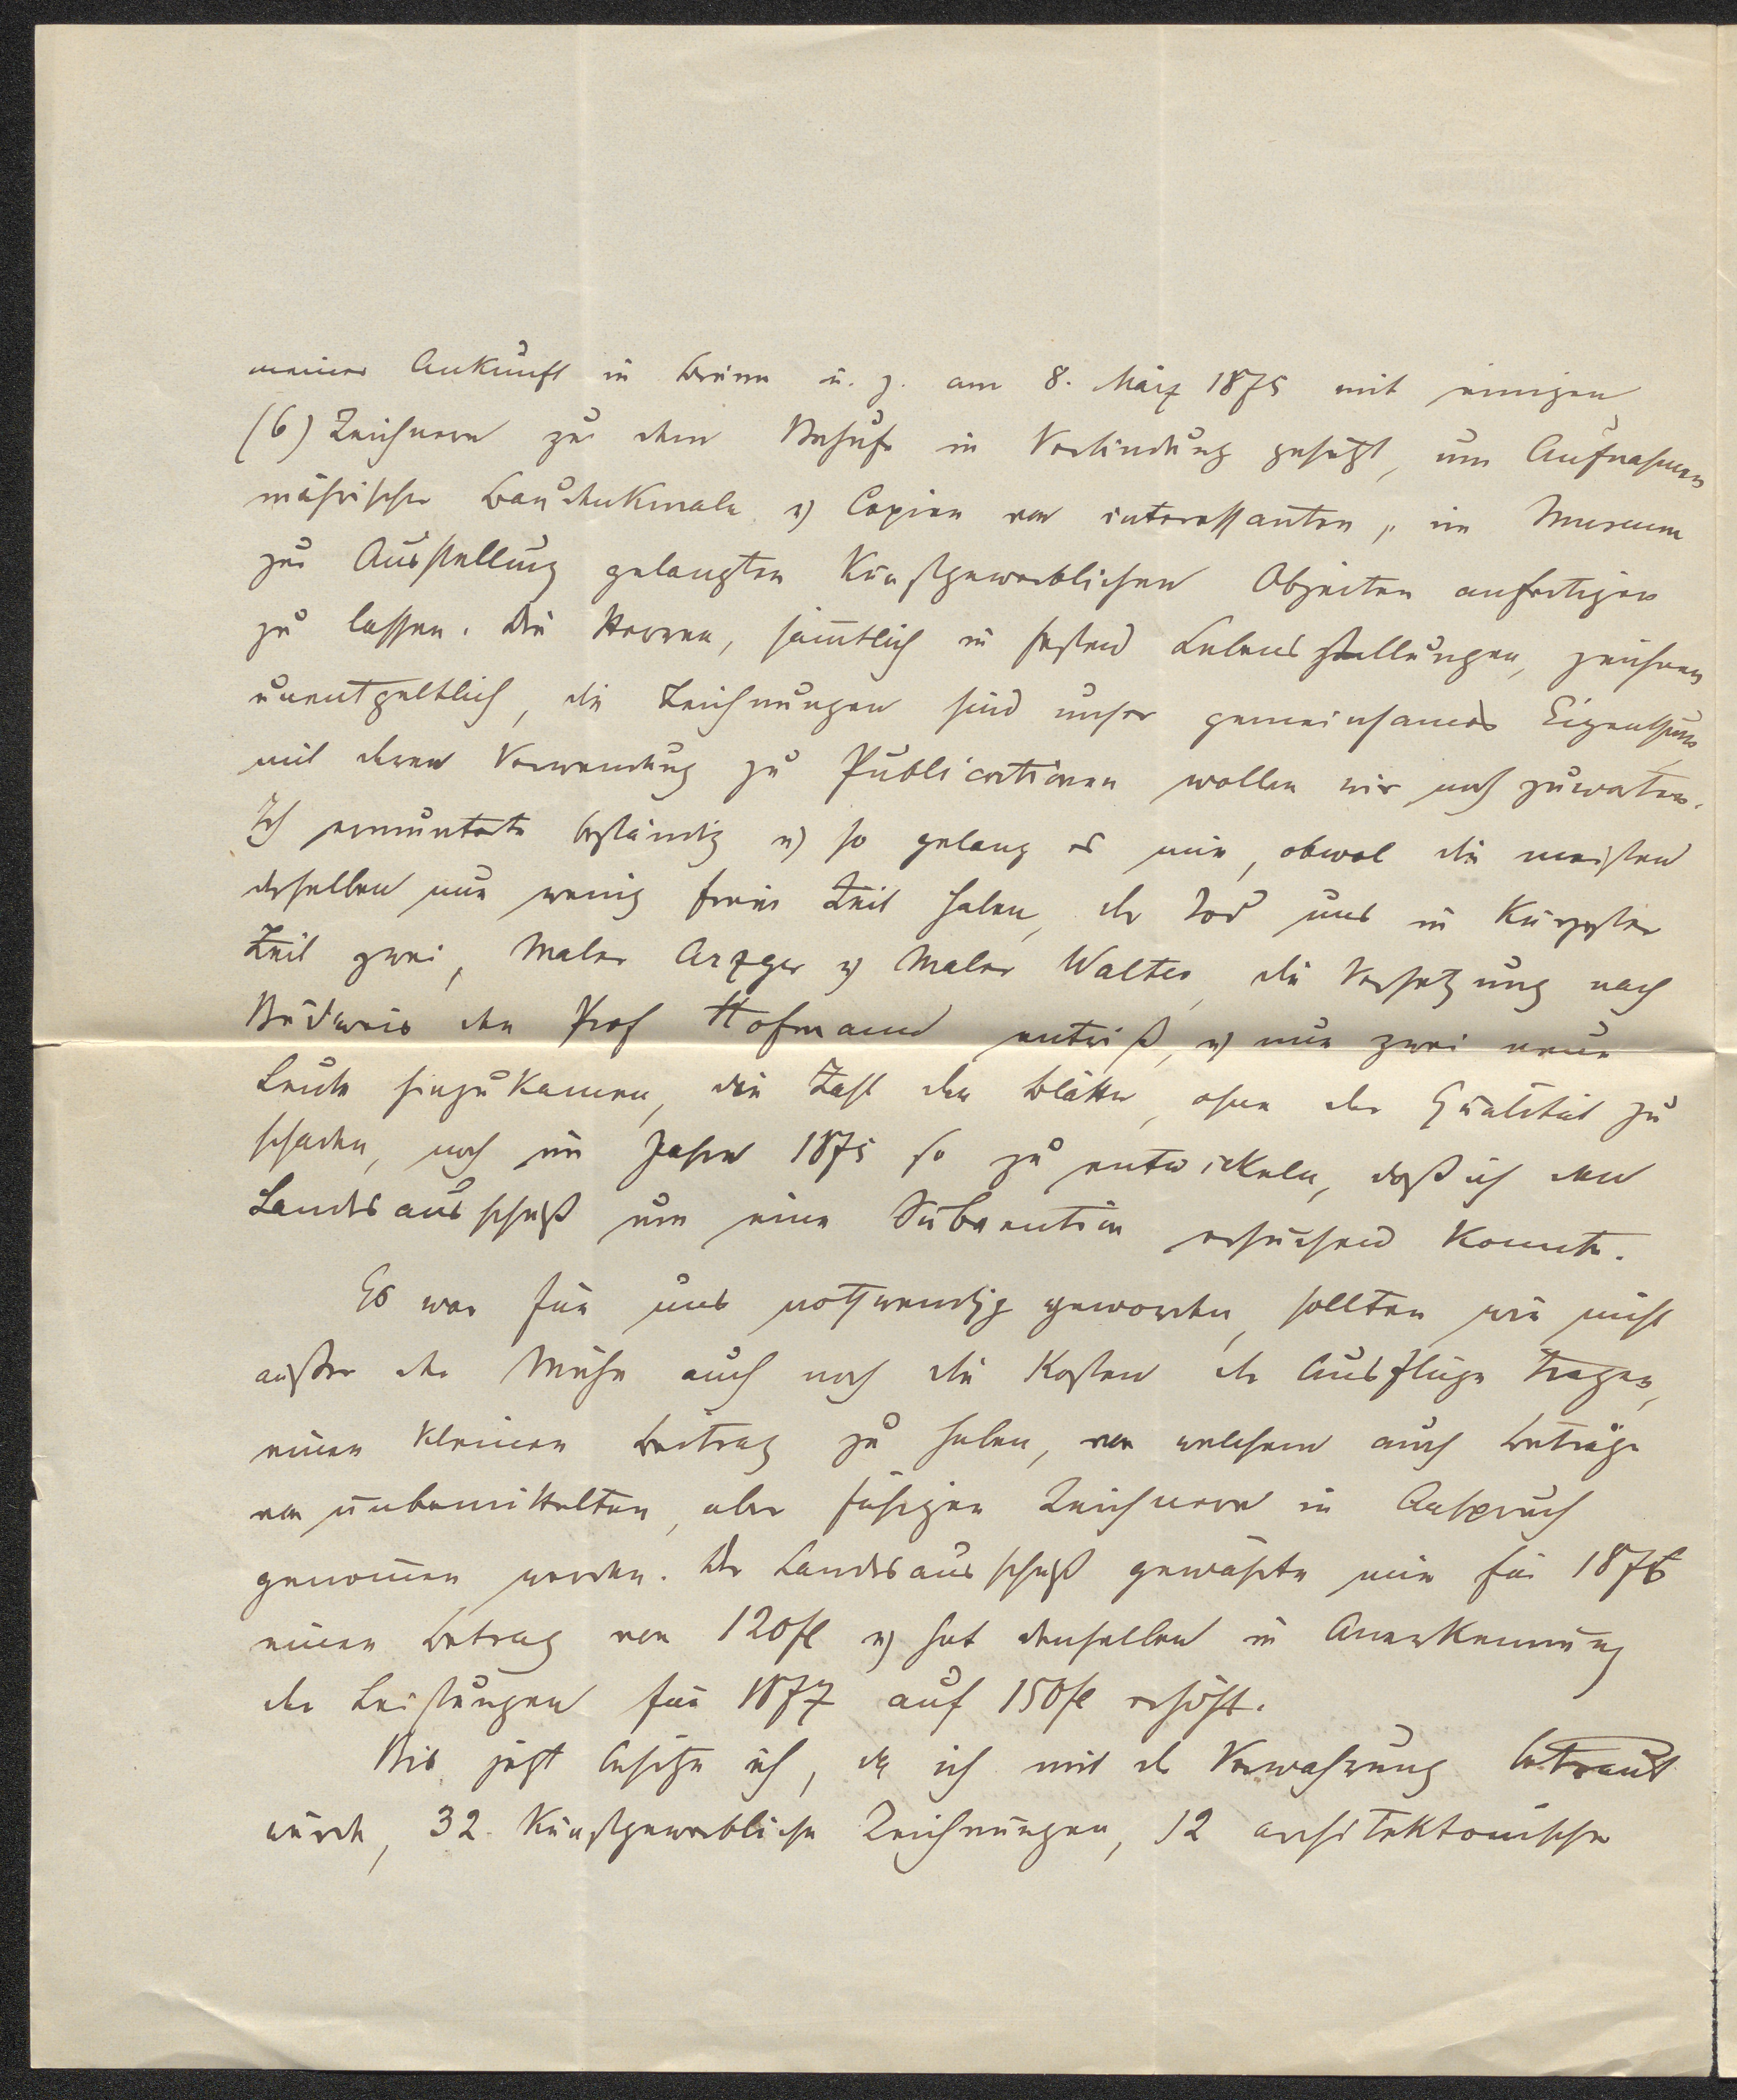 meiner Ankunft in Brünn u. z. am 8. März 1875 mit einigen
(6) Zeichnern zu dem Behufe in Verbindung gesetzt, um Aufnahmen
mährischer Baudenkmale u) Copien von interessanten, im Museum
zur Ausstellung gelangten kunstgewerblichen Objecten anfertigen
zu lassen. Die Herren, sämtlich in festen Lebensstellungen, zeichnen
unentgeltlich, die Zeichnungen sind unser gemeinsames Eigenthum,
mit deren Verwendung zu Publicationen wollen wir noch zuwarten.
Ich ermunterte beständig u) so gelang es mir, obwol die meisten
derselben nur wenig freie Zeit haben, der Tod uns in kürzester
Zeit zwei, Maler Arzger u) Maler Walter, die Versetzung nach
Budweis den Prof Hofmann entriß, u) nur zwei neue
Leute hinzukamen, die Zahl der Blätter, ohne der Qualität zu
schaden, noch im Jahre 1875 so zu entwickeln, daß ich den
Landesausschuß um eine Subvention ersuchen konnte.
Es war für uns nothwendig geworden, sollten wir nicht
außer der Mühe auch noch die Kosten der Ausflüge tragen,
einen kleinen Beitrag zu haben, von welchem auch Beträge
von unbemittelten, aber fähigen Zeichnern in Anspruch
genommen werden. Der Landesausschuß gewährte mir für 1876
einen Betrag von 120fl u) hat denselben in Anerkennung
der Leistungen für 1877 auf 150fl erhöht.
Bis jetzt besitze ich, da ich mit der Verwahrung betraut
wurde, 32 kunstgewerbliche Zeichnungen, 12 architektonische